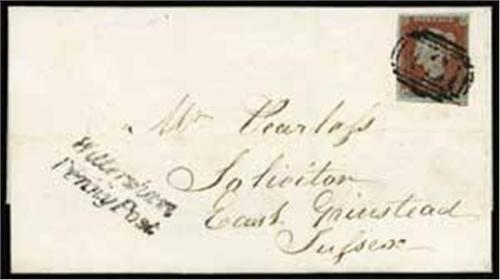 POSTAGE
Mr Pearless
Solicitor
East Grinstead
Sussex
Penny Post